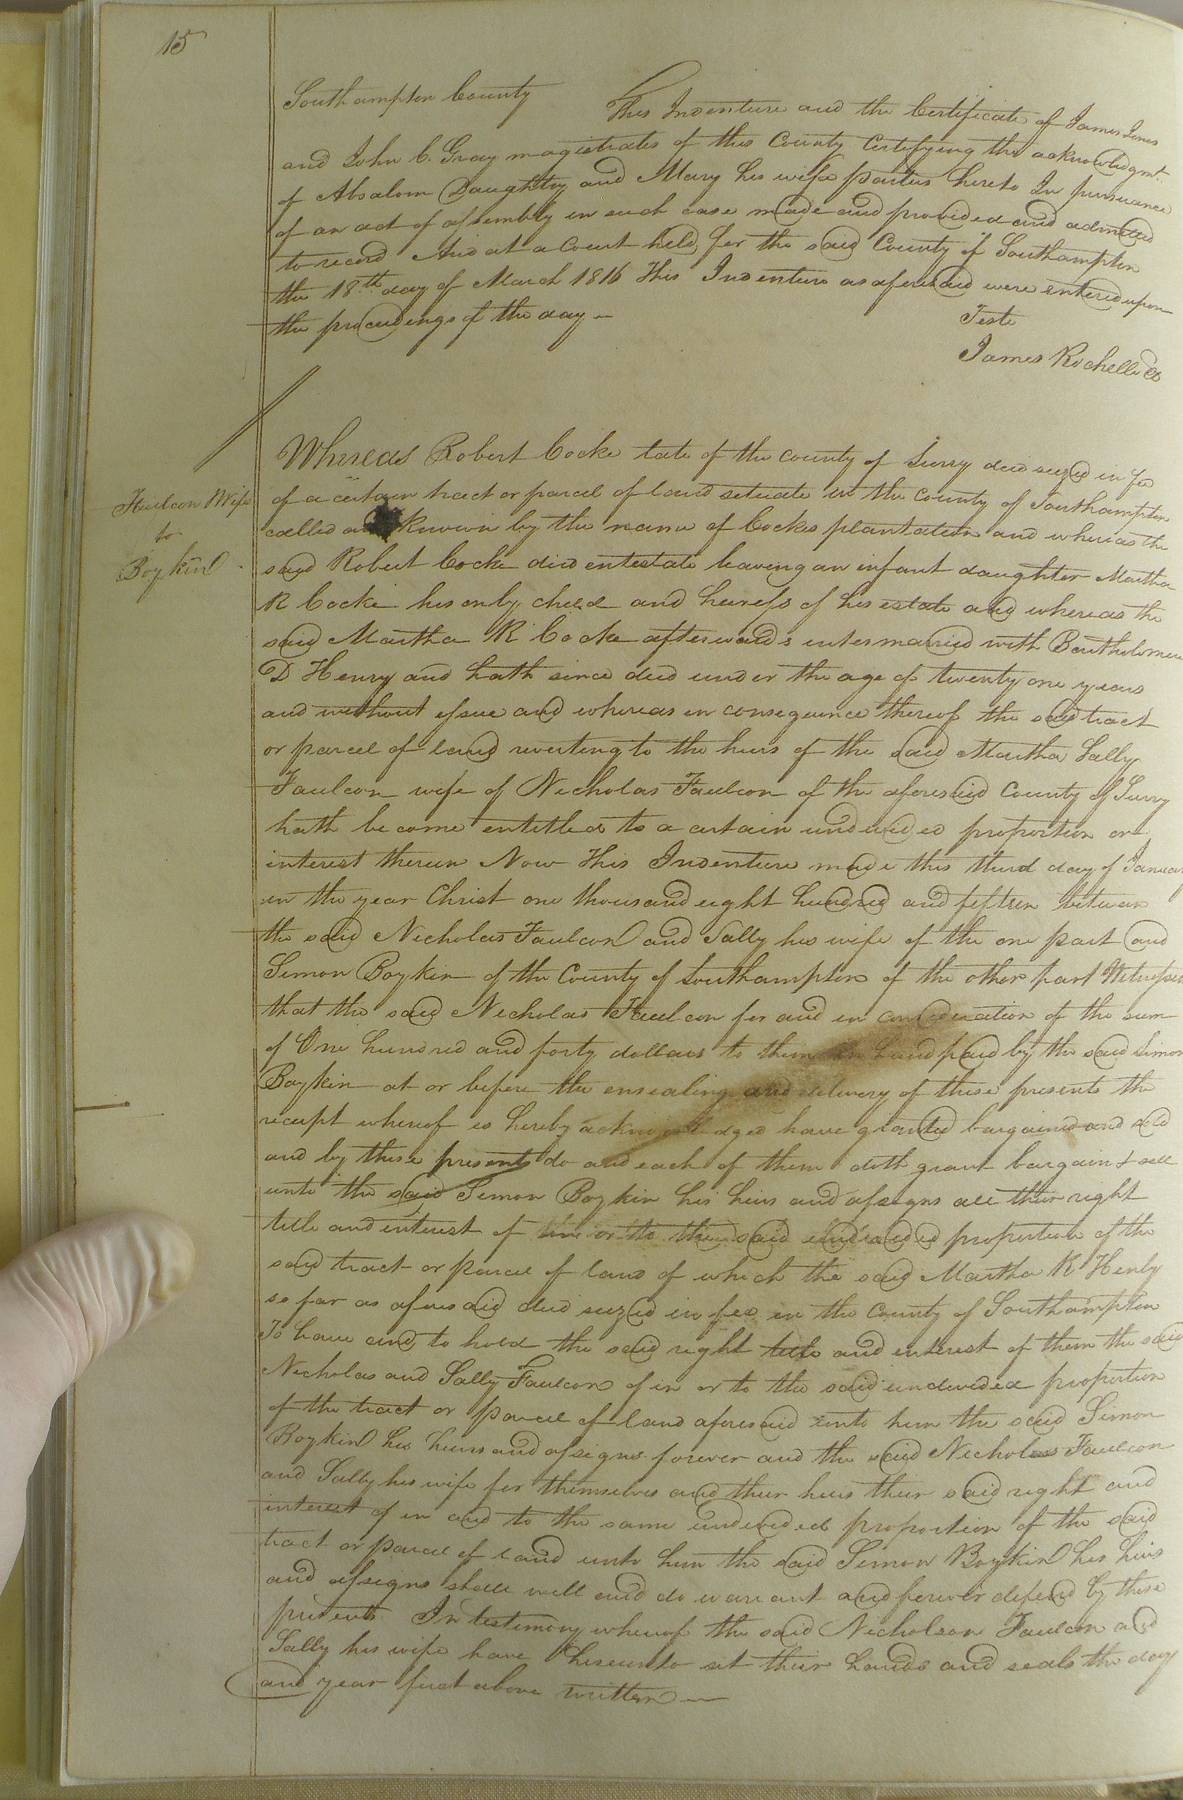 15
Southampton County This Indenture and the Certificate of James Jones
and John C. Gray magistrates of this County Certifying the acknowledgmt.
of Absalom Daughtry and Mary his wife parties hereto In pursuance
of an act of assembly in such case made and provided and admitted
to record And at a Court held for the said County of Southampton
the 18th day of March 1816 This Indenture as aforesaid were entered upon
the proceedings of the day —
Teste
James Rochelle Cl
Faulcon & Wife
to
Boykin
Whereas Robert Cocke late of the county of Surry died seized in fee
of a certain tract or parcel of land setuate in the County of Southampton
called and known by the name of Cockes plantation and whereas the
said Robert Cocke died entestate leaving an infant daughter Martha
R Cocke his only cheld and heiress of his estate and whereas the
said Martha R Cocke afterwards intermarried with Bartholomew
D Henry and hath since died under the age of twenty one years
and without issue and whereas in consequence thereof the said tract
or parcel of land reverting to the heirs of the said Martha Sally
Faulcon wife of Nicholas Faulcon of the aforesaid County of Surry
hath become entitled to a certain undevided proportion or
interest therein Now This Indenture made this third day of January
in the year Christ one thousand eight hundred and fifteen between
the said Nicholas Faulcon and Sally his wife of the one part and
Simon Boykin of the County of Southampton of the other part Witnesseth
that the said Nicholas Faulcon for and in consideration of the sum
of One hundred and forty dollars to them in hand paid by the said Simon
Boykin at or before the ensealing and delivery of these presents the
receipt whereof is hereby acknowledged have granted bargained and sold
and by these presents do and each of them doth grant bargain & sell
unto the said Simon Boykin his heirs and assigns all their right
title and interest of in or to the said undevided proportion of the
said tract or parcel of land of which the said Martha R Henry
so far as aforesaid died seized in fee in the County of Southampton
To have and to hold the said right title and interest of them the said
Nicholas and Sally Faulcon of in or to the said undevided proportion
of the tract or parcel of land aforesaid unto him the said Simon
Boykin his heirs and assigns forever and the said Nicholas Faulcon
and Sally his wife for themselves and their heirs their said right and
interest of in and to the same undevided proportion of the said
tract or parcel of land unto him the said Simon Boykin his heirs
and assigns shall will and do warrant and forever defend by these
presents In testimony whereof the said Nicholson Faulcon and
Sally his wife have hereunto set their hands and seals the day
and year first above written —